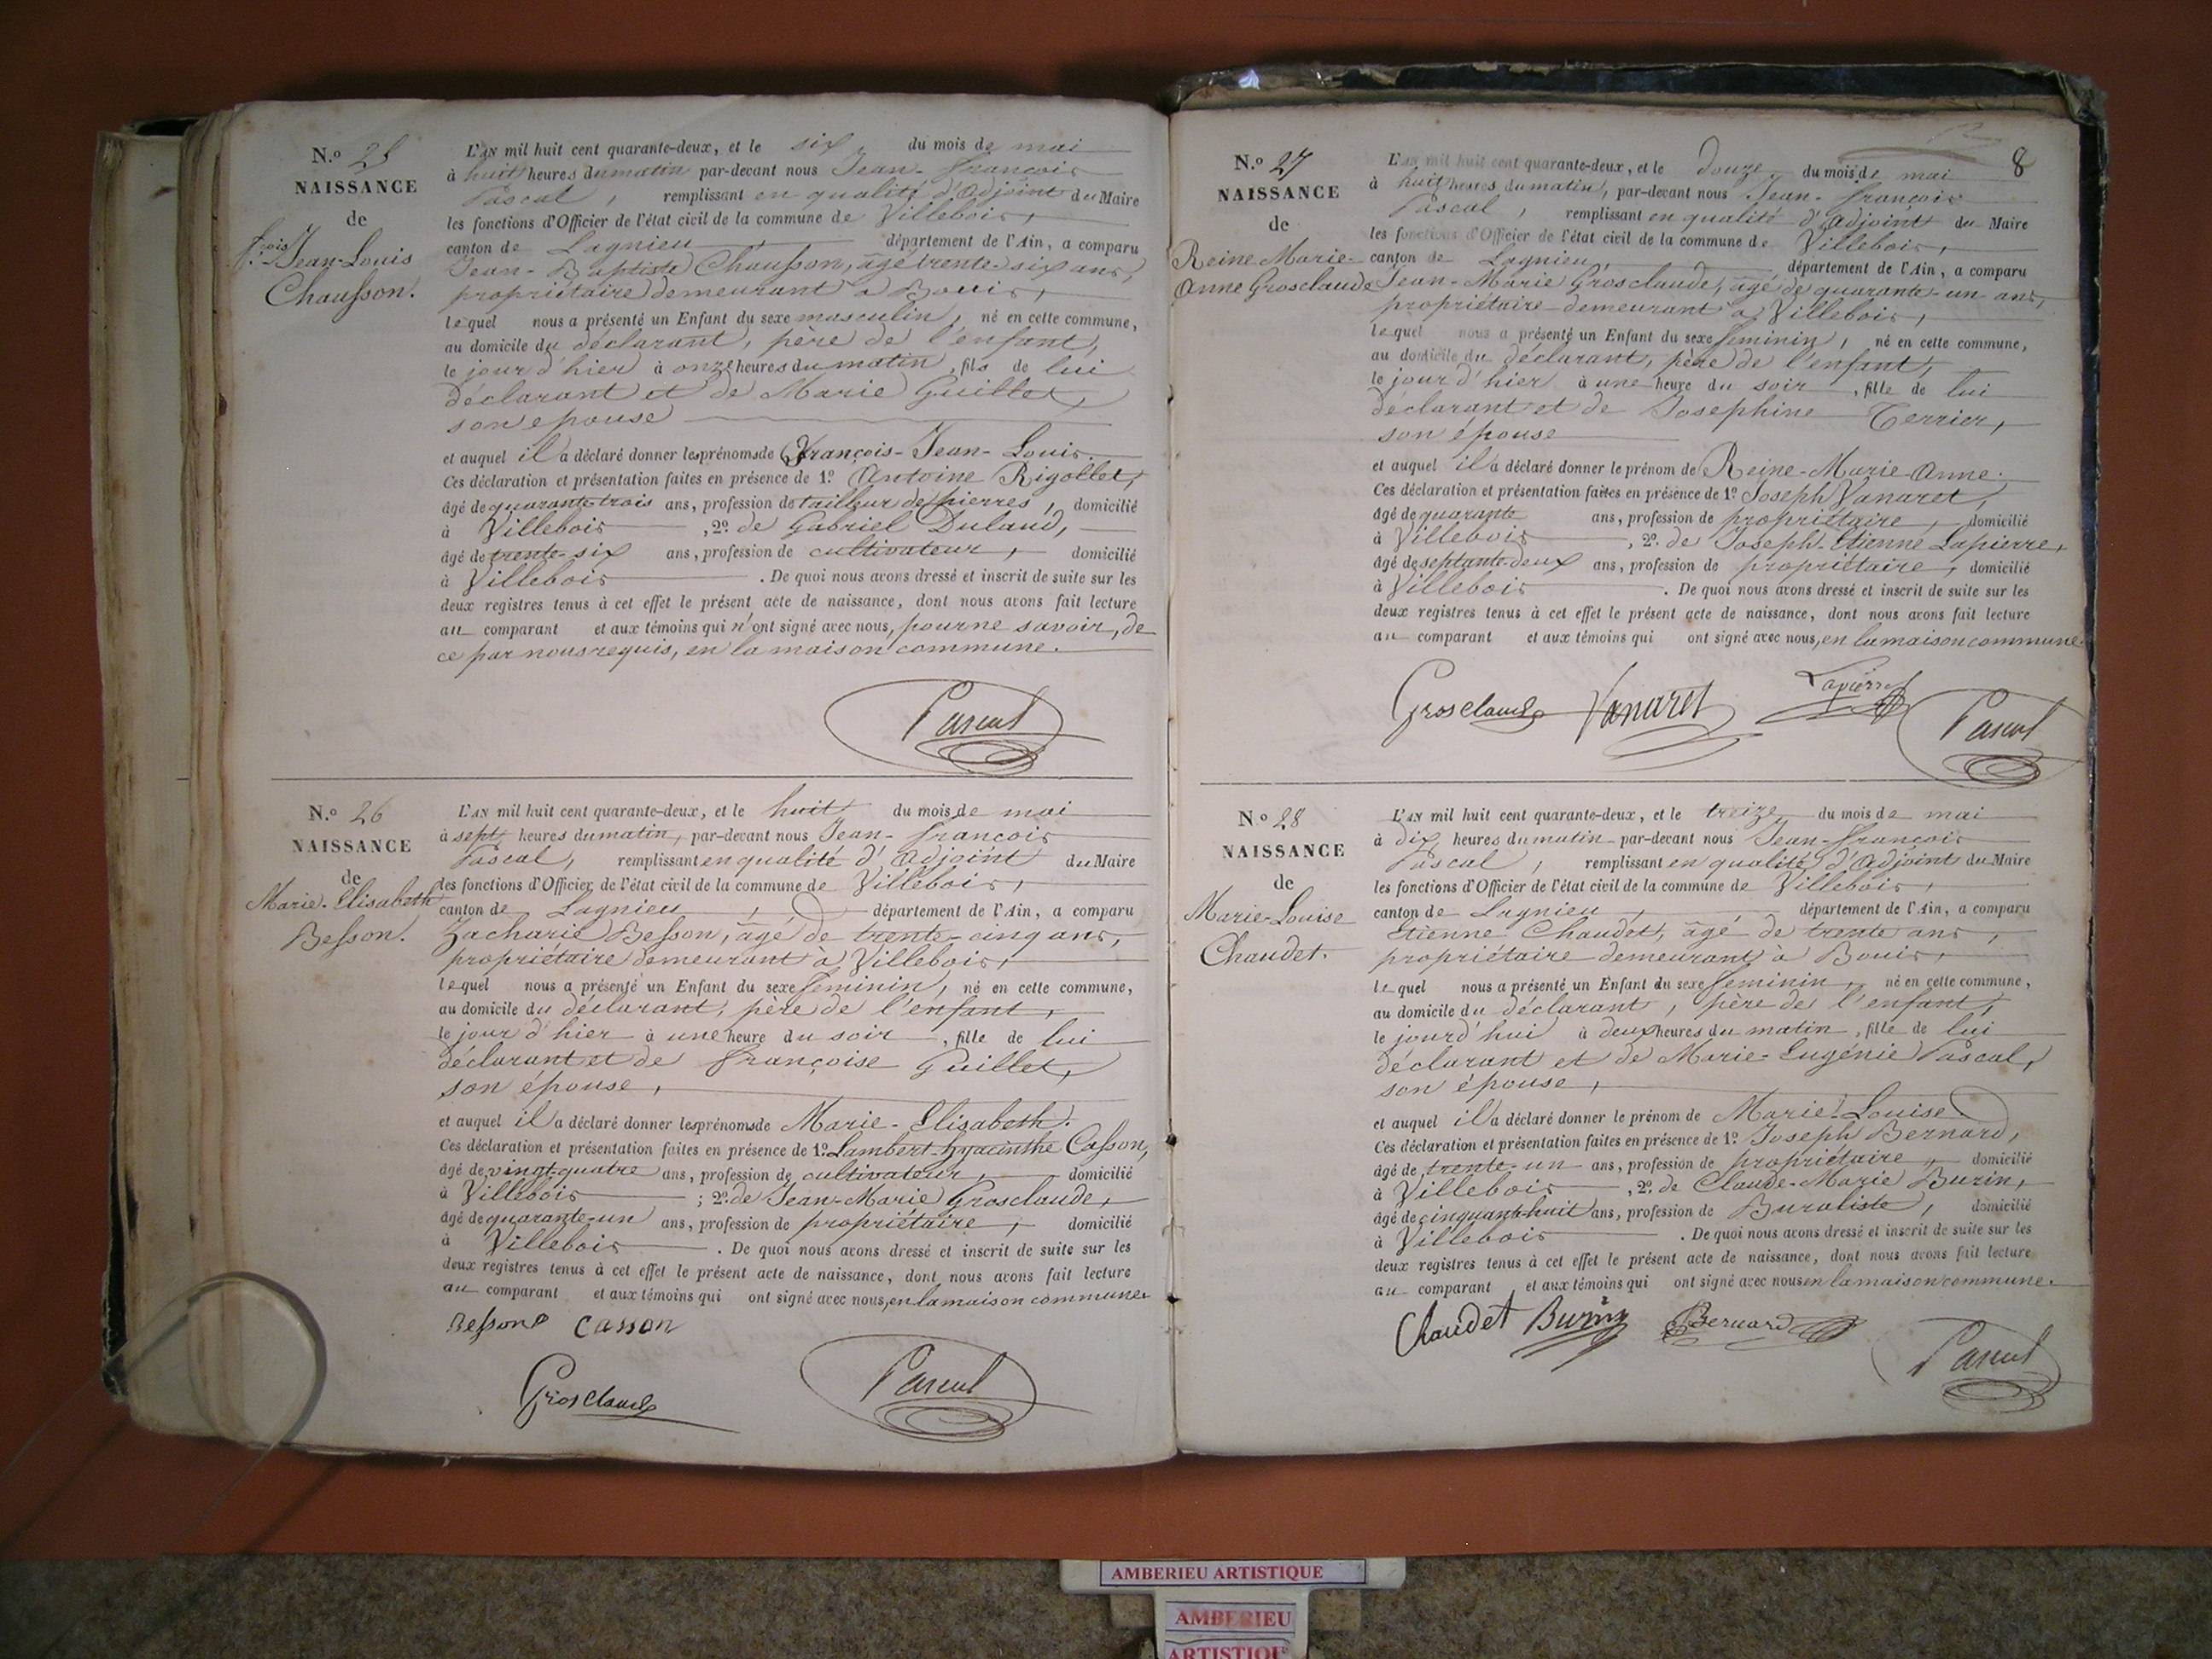 N.o 25
NAISSANCE
de
f.ois Jean-Louis
Chausson.
L'AN mil huit cent quarante-deux, et le six, du mois de mai
à huit heures du matin par-devant nous Jean-François
Pascal, remplissant en qualité d'Adjoint du Maire
les fonctions d'Officier de l'état civil de la commune de Villebois,
canton de Lagnieu département de l'Ain, a comparu
Jean-Baptiste Chausson, âgé trente-six ans,
propriétaire demeurant à Bouis,
lequel nous a présenté un Enfant du sexe masculin, né en cette commune,
au domicile du déclarant, père de l'enfant,
le jour d'hier à onze heures du matin, fils de lui
déclarant et de Marie Guillet,
son epouse
et auquel il a déclaré donner les prénoms de François-Jean-Louis.
Ces déclaration et présentation faites en présence de 1.o Antoine Rigollet,
âgé de quarante-trois ans, profession de tailleur de pierres, domicilié
à Villebois, 2.o de Gabriel Dulaud,
âgé de trente-six ans, profession de cultivateur, domicilié
à Villebois. De quoi nous avons dressé et inscrit de suite sur les
deux registres tenus à cet effet le présent acte de naissance, dont nous avons fait lecture
au comparant et aux témoins qui n'ont signé avec nous, pour ne savoir, de
ce par nous requis, en la maison commune.
Pascal
N.o 26
NAISSANCE
de
Marie-Elisabeth
Besson.
L'AN mil huit cent quarante-deux, et le huit du mois de mai
à sept heures du matin, par-devant nous Jean-François
Pascal, remplissant en qualité d'Adjoint du Maire
les fonctions d'Officier de l'état civil de la commune de Villebois,
canton de Lagnieu, département de l'Ain, a comparu
Zacharie Besson, âgé de trente-cinq ans,
propriétaire demeurant à Villebois,
lequel nous a présenté un Enfant du sexe feminin, né en cette commune,
au domicile du déclarant, père de l'enfant,
le jour d'hier à une heure du soir, fille de lui
déclarant et de Françoise Guillet,
son épouse,
et auquel il a déclaré donner les prénoms de Marie-Elisabeth.
Ces déclaration et présentation faites en présence de 1.o Lambert-hyacinthe Casson,
âgé de vingt-quatre ans, profession de cultivateur, domicilié
à Villebois; 2.o de Jean-Marie Grosclaude,
âgé de quarante-un ans, profession de propriétaire, domicilié
à Villebois. De quoi nous avons dressé et inscrit de suite sur les
deux registres tenus à cet effet le présent acte de naissance, dont nous avons fait lecture
au comparant et aux témoins qui ont signé avec nous, en la maison commune.
Besson Casson
Grosclaude Pascal
8
N.o 27
NAISSANCE
de
Reine-Marie-
Anne Grosclaude
L'AN mil huit cent quarante-deux, et le douze du mois de mai
à huit heures du matin, par-devant nous Jean-François
Pascal, remplissant en qualité d'Adjoint du Maire
les fonctions d'Officier de l'état civil de la commune de Villebois,
canton de Lagnieu, département de l'Ain, a comparu
Jean-Marie Grosclaude, âgé de quarante-un ans,
propriétaire demeurant à Villebois,
lequel nous a présenté un Enfant du sexe feminin, né en cette commune,
au domicile du déclarant, père de l'enfant,
le jour d'hier à une heure du soir, fille de lui
déclarant et de Josephine Terrier,
son épouse
et auquel il a déclaré donner le prénom de Reine-Marie-Anne.
Ces déclaration et présentation faites en présence de 1.o Joseph Vanaret,
âgé de quarante ans, profession de propriétaire, domicilié
à Villebois, 2.o de Joseph-Etienne Lapierre,
âgé de septante-deux ans, profession de propriétaire, domicilié
à Villebois. De quoi nous avons dressé et inscrit de suite sur les
deux registres tenus à cet effet le présent acte de naissance, dont nous avons fait lecture
au comparant et aux témoins qui ont signé avec nous, en la maison commune.
Grosclaude Vanaret Lapierre
Pascal
N.o 28
NAISSANCE
de
Marie-Louise
Chaudet.
L'AN mil huit cent quarante-deux, et le treize du mois de mai
à dix heures du matin par-devant nous Jean-François
Pascal, remplissant en qualité d'Adjoint du Maire
les fonctions d'Officier de l'état civil de la commune de Villebois,
canton de Lagnieu, département de l'Ain, a comparu
Etienne Chaudet, âgé de trente ans,
propriétaire demeurant à Bouis,
lequel nous a présenté un Enfant du sexe feminin, né en cette commune,
au domicile du déclarant, père de l'enfant,
le jourd'hui à deux heures du matin, fille de lui
déclarant et de Marie-Eugénie Pascal,
son épouse,
et auquel il a déclaré donner le prénom de Marie-Louise
Ces déclaration et présentation faites en présence de 1.o Joseph Bernard,
âgé de trente-un ans, profession de propriétaire, domicilié
à Villebois, 2.o de Claude-Marie Burin,
âgé de cinquante-huit ans, profession de Buraliste, domicilié
à Villebois. De quoi nous avons dressé et inscrit de suite sur les
deux registres tenus à cet effet le présent acte de naissance, dont nous avons fait lecture
au comparant et aux témoins qui ont signé avec nous en la maison commune.
Chaudet Burin Bernard
Pascal
AMBERIEU ARTISTIQUE
AMBERIEU
ARTISTIQU